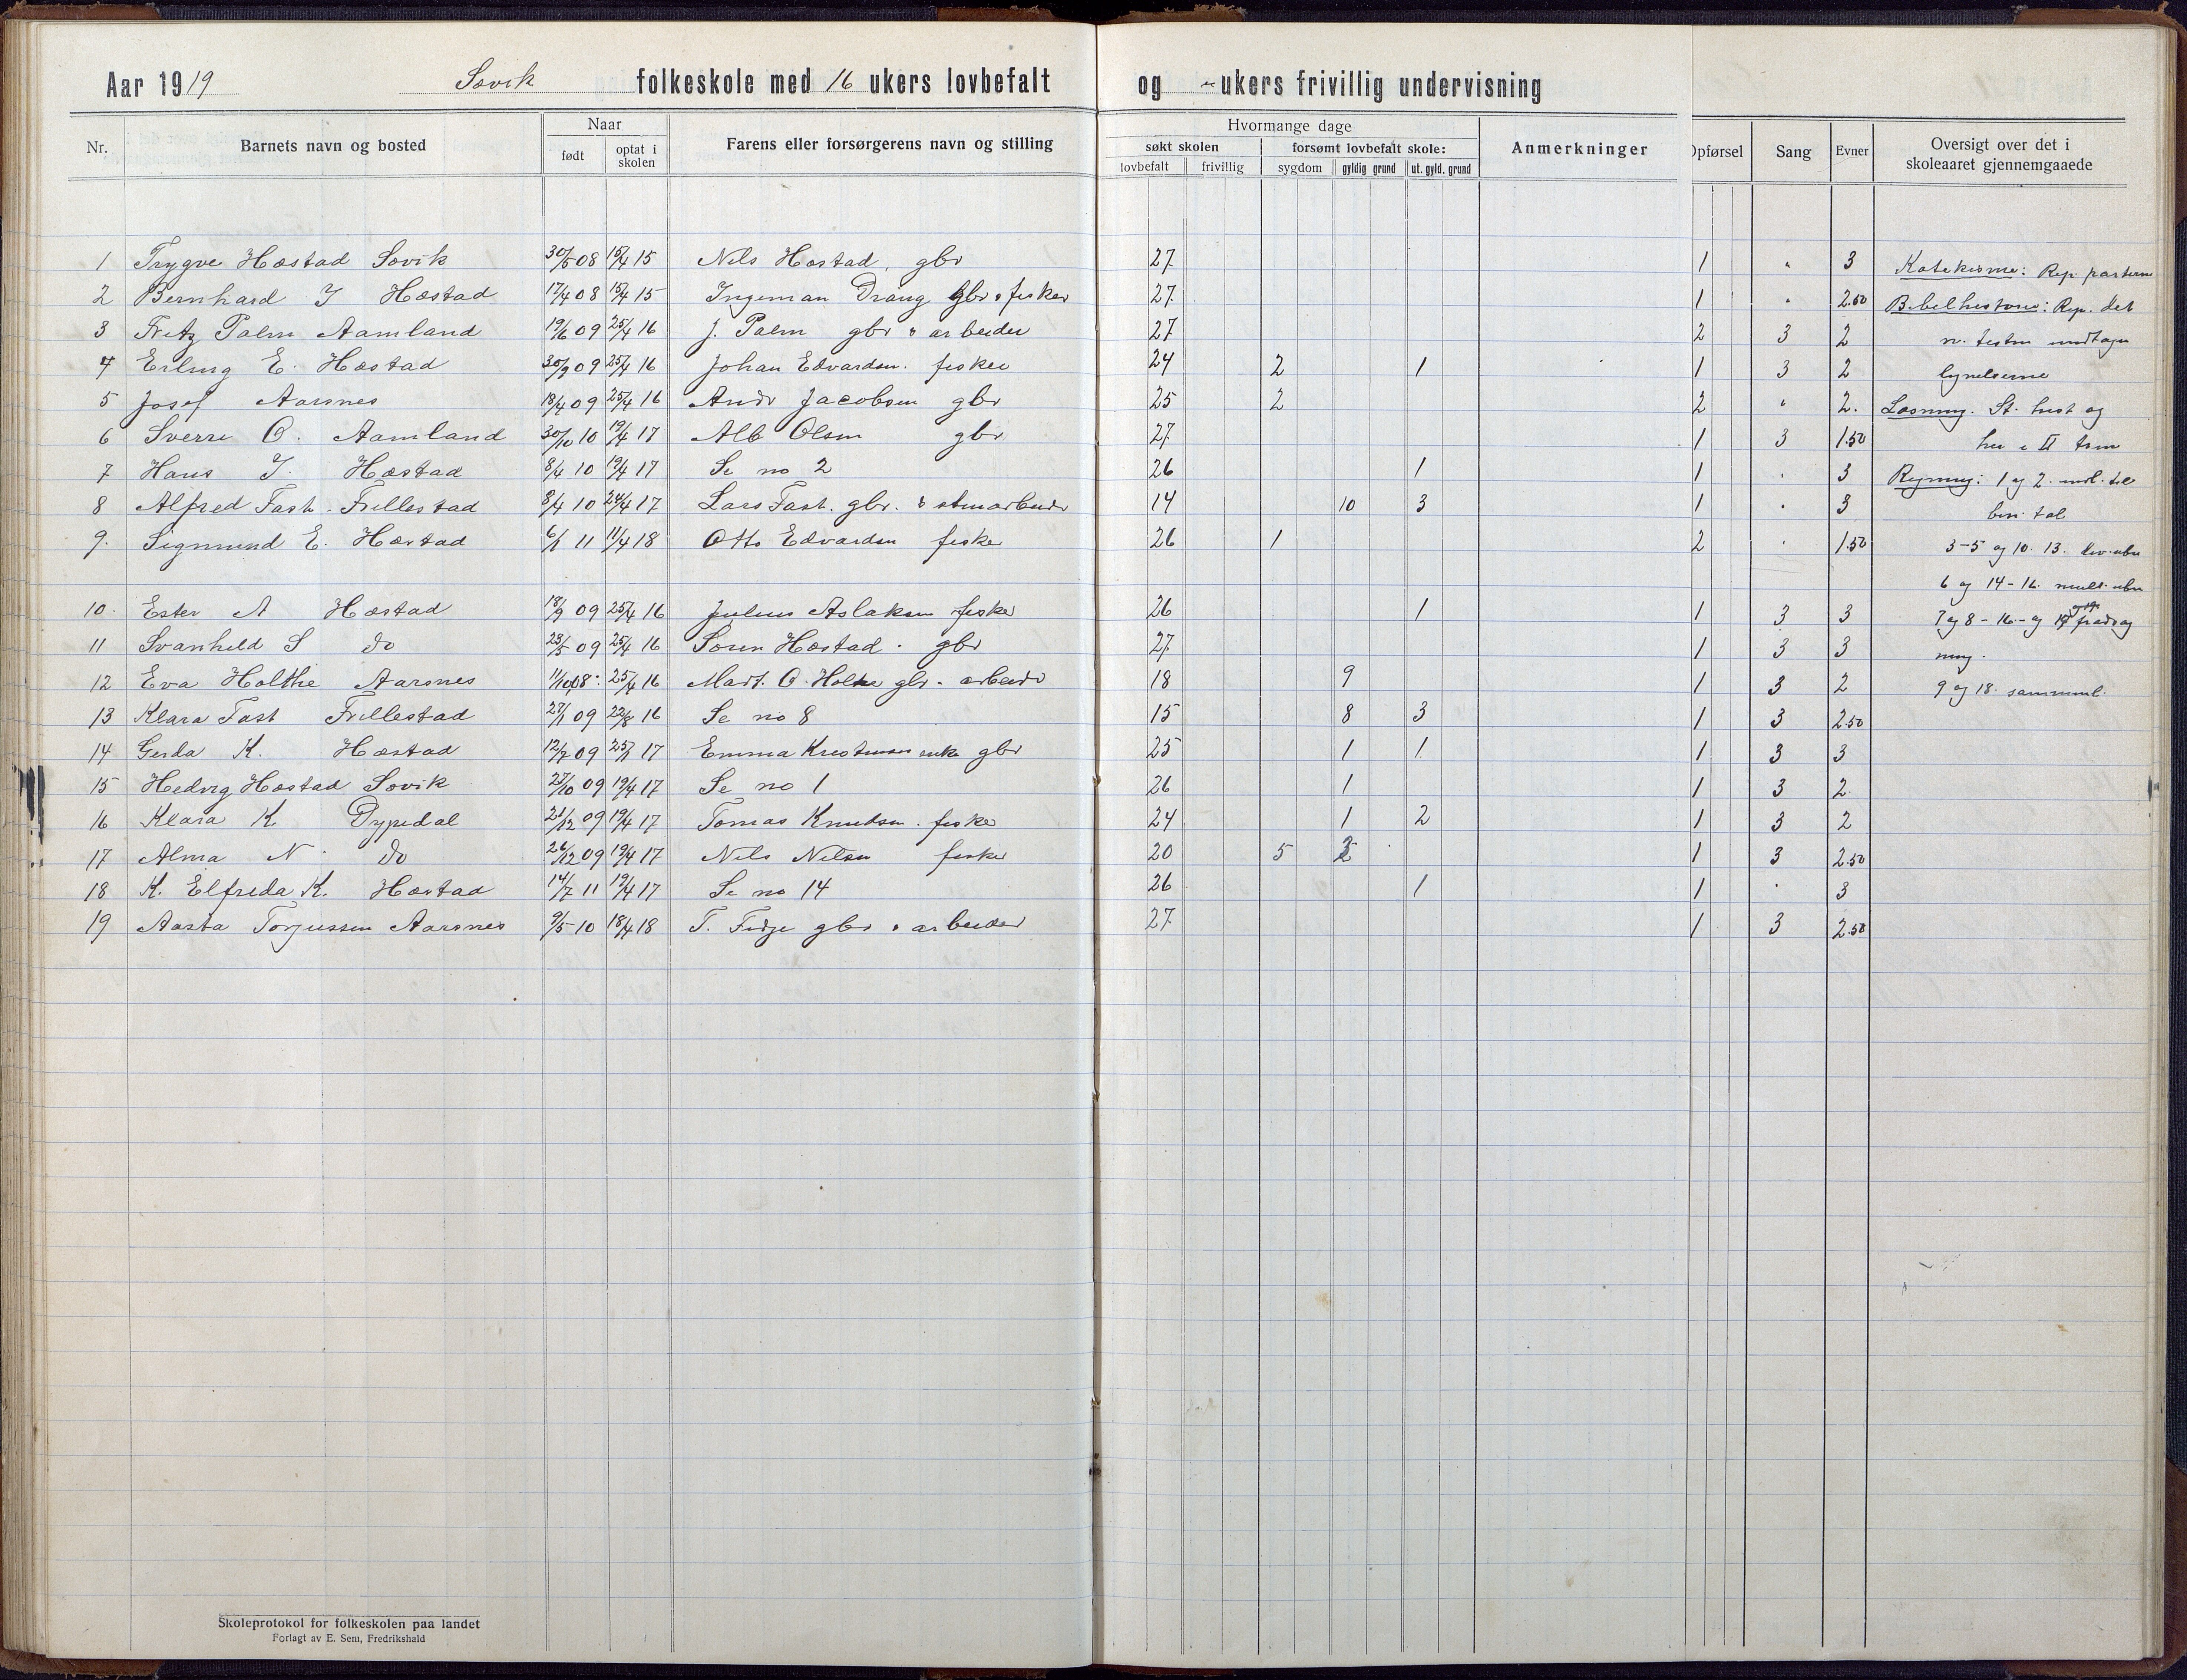 Aar 1919 Sævik folkeskole med 16 ukers lovbefalt og - ukers frivillig undervisning
Nr. Barnets navn og bosted Naar født optat i skolen Farens eller forsørgerens navn og stilling Hvormange dage søkt skolen lovbefalt frivillig forsømt lovbefalt skole: sygdom gyldig grund ut. gyld. grund Anmerkninger Opførsel Sang Evner Oversigt over det i skoleaaret gjennemgaaede
1 Trygve Hæstad Sævik 30/5 08 15/4 15 Nils Hæstad, gbr 27 1 " 3 Katekisme: Rep. parterne
2 Bernhard I Hæstad 17/4 08 15/4 15 Ingeman Drang gbr & fisker 27 1 " 2.50 Bibelhistorie: Rep. det
3 Fritz Palm Aamland 19/6 09 25/4 16 J. Palm gbr & arbeider 27 2 3 2 n. testm undtagn
4 Erling E. Hæstad 30/9 09 25/4 16 Johan Edvardsn. fisker 24 2 1 1 3 2
5 Josef Aarsnes 18/4 09 25/4 16 Andr Jacobsen gbr 25 2 2 " 2. Læsning. St. hist og
6 Sverre O. Aamland 30/10 10 19/4 17 Alb Olsen gbr 27 1 3 1.50
7 Hans I. Hæstad 8/4 10 19/4 17 Se no 2 26 1 1 " 3 Regning: 1 og 2. mdl. til
8 Alfred Fast. Frillestad 8/4 10 24/4 17 Lars Fast. gbr. & stenarbeidr 14 10 3 1 " 3 ben. tal
9. Sigmund E. Hæstad 6/1 11 11/4 18 Otto Edvardsn fisker 26 1 2 " 1.50 3-5 og 10. 13.
6 og 14-16. mult.
10. Ester A Hæstad 18/9 09 25/4 16 Julius Aslaksen fisker 26 1 1 3 3 7 og 8 - 16 - og
11 Svanhild S do 25/5 09 25/4 16 Søren Hæstad. gbr 27 1 3 3 ning.
12 Eva Holthe Aarsnes 11/10 08 25/4 16 Mart. O. Holthe gbr. arbeidr 18 9 1 3 2 9 og 18. sammenl.
13 Klara Fast Frillestad 27/1 09 22/8 16 Se no 8 15 8 3 1 3 2.50
14 Gerda K. Hæstad 12/7 09 25/1 17 Emma Kristensen enke gbr 25 1 1 1 3 3
15 Hedvig Hæstad Sævik 27/10 09 19/4 17 Se no 1 26 1 1 3 2.
16 Klara K. Dypedal 21/12 09 19/4 17 Tomas Knudsen. fisker 24 1 2 1 3 2
17 Alma N. do 26/12 09 19/4 17 Nils Nilsen fisker 20 5 2 1 3 2.50
18 K. Elfreda K. Hæstad 14/7 11 19/4 17 Se no 14 26 1 1 " 3
19 Aasta Torjussen Aarsnes 9/5 10 18/4 18 T. Fidje gbr & arbeider 27 1 3 2.50
Skoleprotokol for folkeskolen paa landet
Forlagt av E. Sem, Fredrikshald